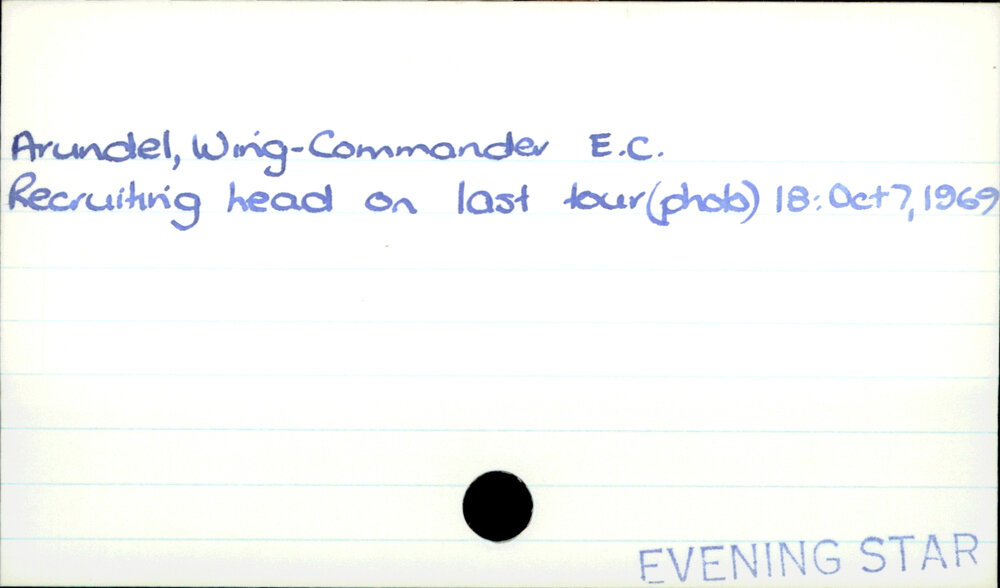 Arundel, Wing-Commander E.C.
Recruiting head on last tour (photo) 18: Oct 7, 1969
EVENING STAR